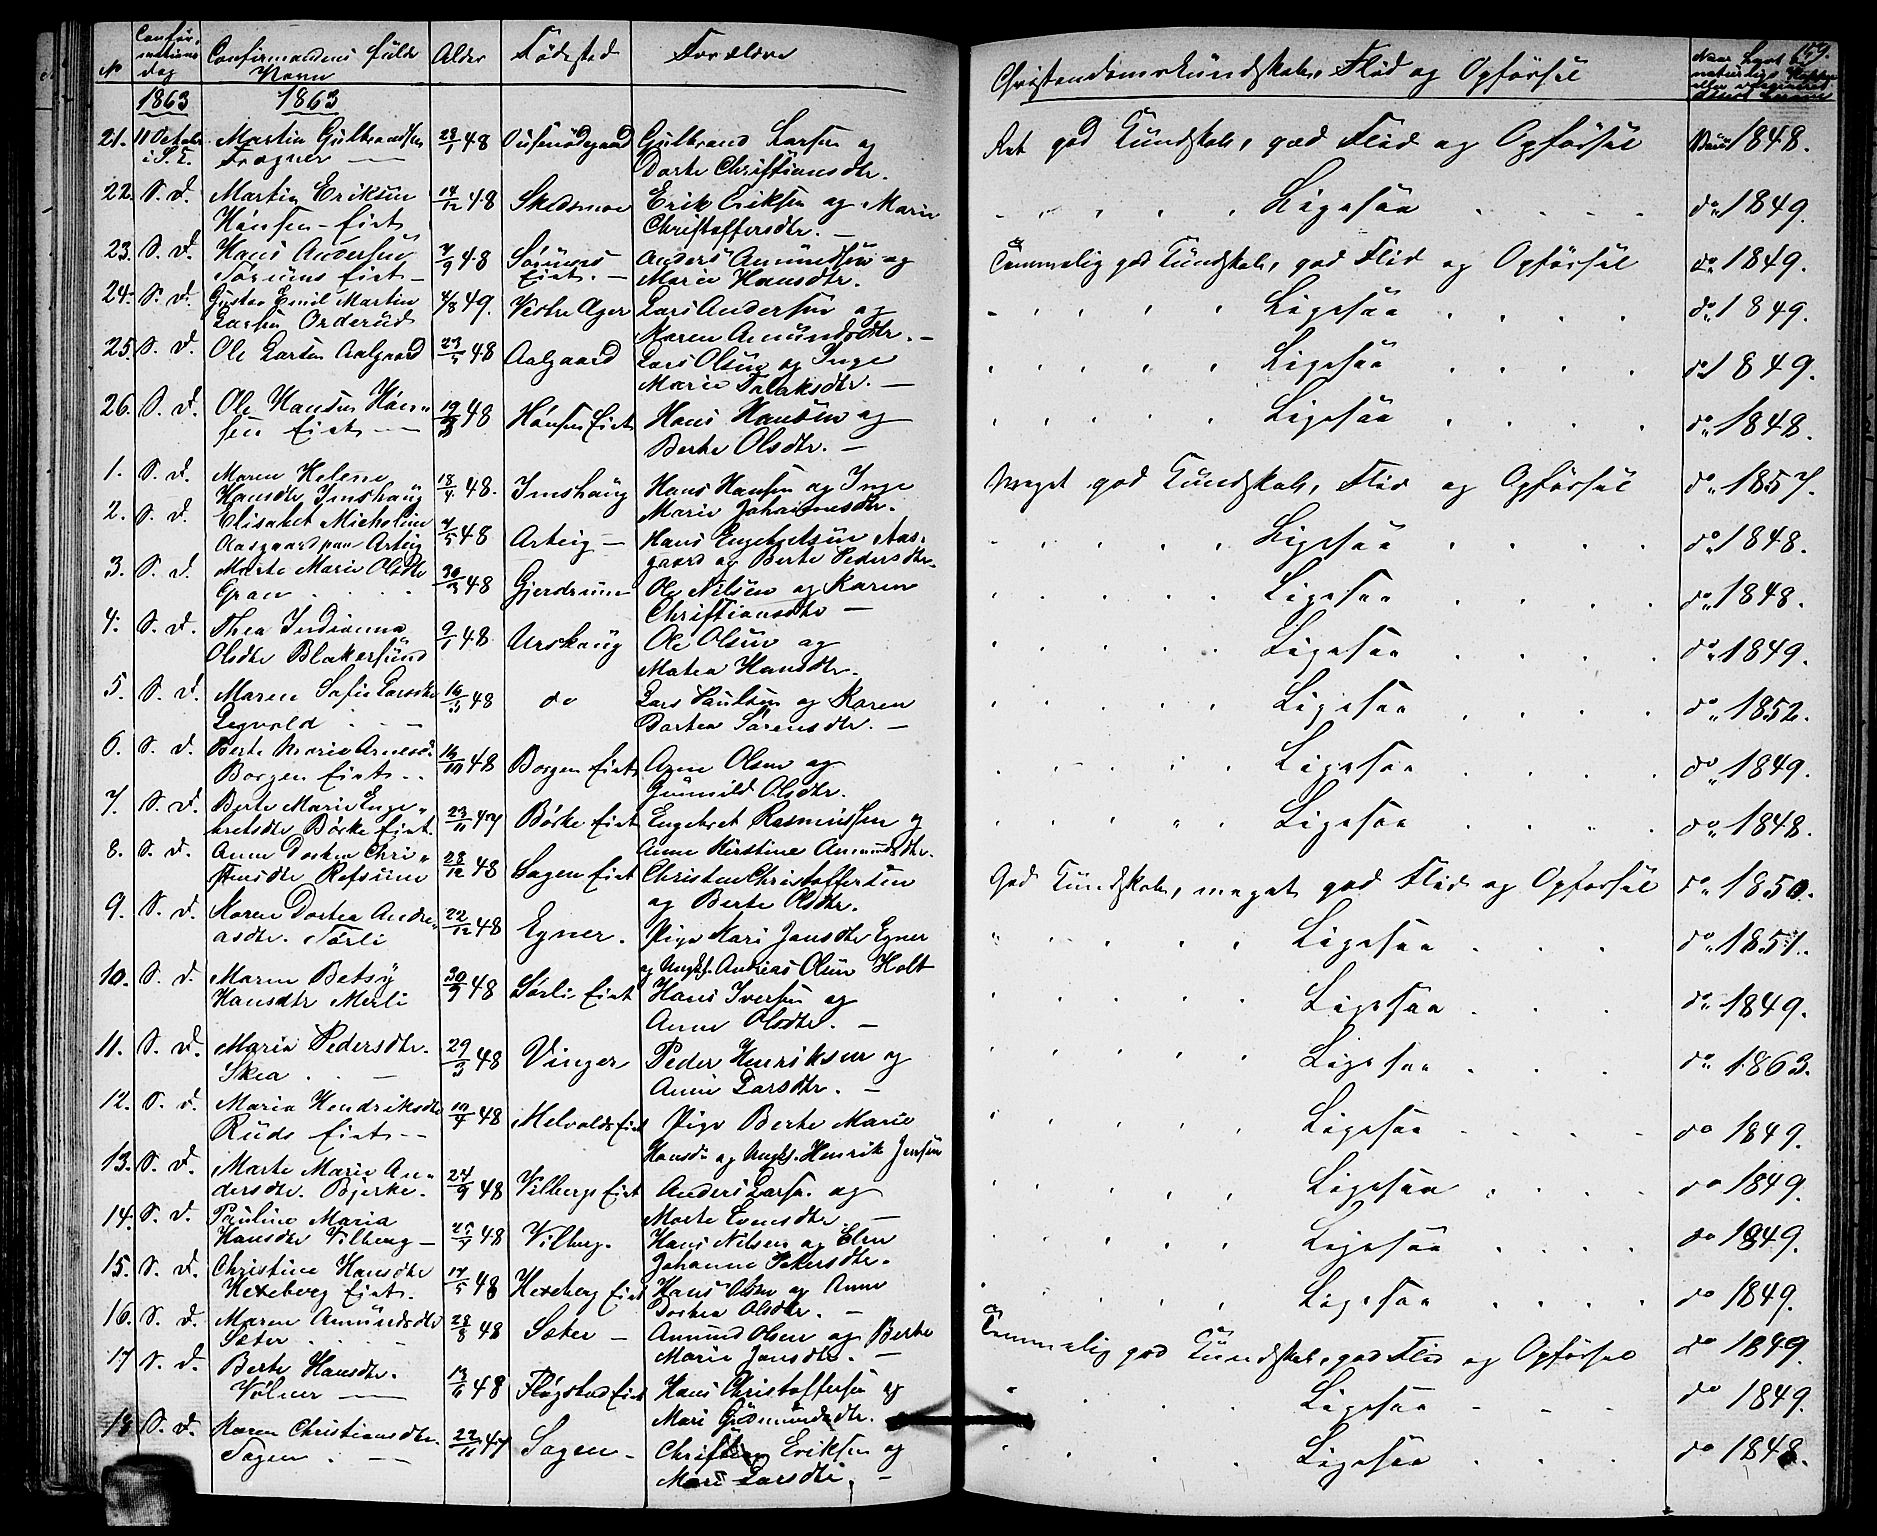 No
Confir-
mations
Dag
Confirmandens fulde
Navn
Alder
Fødested
Forældre
Christendomskundskab, Flid og Opførsel
159.
1863
1863
21. 11 October Martin Gulbrandsen 28/1 48 Gulbrand Larsen og Ret god Kundskab, god Flid og Opførsel 1848.
Frogner — Dorte Christiansdtr.
22. S. d. Martin Eriksen 14/12 48 Skedsmoe Erik Eriksen og Marie Ligesaa do 1849.
Hønsen-Eiet Christoffersdtr. —
23. S. d. Hans Andersen 7/9 48 Sørums Anders Amundsen og Temmelig god Kundskab, god Flid og Opførsel do 1849.
Sørums Eiet — Eiet. — Marie Hansdtr.
24. S. d. Gustav Emil Martin 4/8 49. Vestre Ager Lars Andersen og Ligesaa do 1849.
Larsen Orderud Maren Amundsdtr. —
25. S. d. Ole Larsen Aalgaard 23/5 48 Aalgaard Lars Olsen og Inge Ligesaa do 1849.
Marie Falaksdtr. —
26. S. d. Ole Hansen Høn- 19/3 48 Hønsen Eiet Hans Hansen og Ligesaa do 1848.
sen Eiet — Berte Olsdtr. —
1. S. d. Maren Helene 18/4 48. Imshaug Hans Hansen og Inge Meget god Kundskab, Flid og Opførsel do 1857.
Hansdtr Imshaug Marie Johannesdtr.
2. S. d. Elisabet Micholine 9/5 48 Arteig — Hans Engebretsen Aas- Ligesaa do 1848.
Aasgaard paa Arteig gaard og Berte Pedersdtr.
3. S. d. Marte Marie Olsdtr 30/3 48 Gjerdrum Ole Nilsen og Karen Ligesaa do 1848.
Gran Christiansdtr —
4. S. d. Thea Indianna 9/1 48 Urskaug Ole Olsen og Ligesaa do 1849.
Olsdtr Blakersund Matea Hansdtr.
5. S. d. Maren Sofie Larsdtr 16/3 48 do Lars Paulsen og Karen Ligesaa do 1852.
Legvold Dortea Sørensdtr. —
6. S. d. Berte Marie Arnesd. 16/10 48 Borgen Eiet Arne Olsen og Ligesaa do 1849.
Borgen Eiet Gunnild Olsdtr.
7. S. d. Berte Marie Enge- 23/11 47 Børke Eiet Engebret Rasmussen og Ligesaa do 1848.
bretsdtr Børke Eiet. Anne Kirstine Amundsdtr.
8. S. d. Anne Dortea Chri- 28/12 48 Sagen Eiet Christen Christoffersen God Kundskab, meget god Flid og Opførsel do 1850.
stensdtr Refsum og Berte Olsdtr.
9. S. d. Karen Dortea Andre- 22/12 48 Egner. Pige Kari Jansdtr Egner Ligesaa do 1851.
asdtr. Sørli og Ungk. Andreas Olsen Holt
10. S. d. Maren Betsy 30/9 48 Sørli Eiet Hans Iversen og Ligesaa do 1849.
Hansdtr Merli Anne Olsdtr. —
11. S. d. Maria Pedersdtr. 29/3 48 Vinger Peder Henriksen og Ligesaa do 1863.
Skea Anne Larsdtr. —
12. S. d. Maria Hendriksdtr 10/4 48 Melvolds Eiet Pige Berte Marie Ligesaa do 1849.
Ruds Eiet — Hansdr og Ungk. Henrik Jensen
13. S. d. Marte Marie An- 24/9 48 Vilbergs Eiet Anders Larsen og Ligesaa do 1849.
dersdtr. Bjerke. Marte Evensdtr —
14. S. d. Pauline Maria 48 Vilberg. Hans Nilsen og Elen Ligesaa do 1849.
Hansdtr Vilberg — Johanne Pedersdtr.
15. S. d. Christine Hansdtr 17/5 48 Hexeberg Eiet Hans Olsen og Anne Ligesaa do 1849.
Hexeberg Eiet. Dortea Olsdtr. —
16. S. d. Maren Amundsdtr 28/8 48 Sæter — Amund Olsen og Berte Temmelig god Kundskab, god Flid og Opførsel do 1849.
Sæter Marie Jansdtr. —
17 S. d. Berte Hansdtr. 13/6 48 Fløgstad Eiet Hans Christoffersen og Ligesaa do 1849.
Vølner — Mari Gudmundsdtr.
18 S. d. Karen Christiansdtr. 22/11 47 Sagen — Christian Eriksen og Ligesaa do 1848.
Sagen — Mari Larsdtr. —